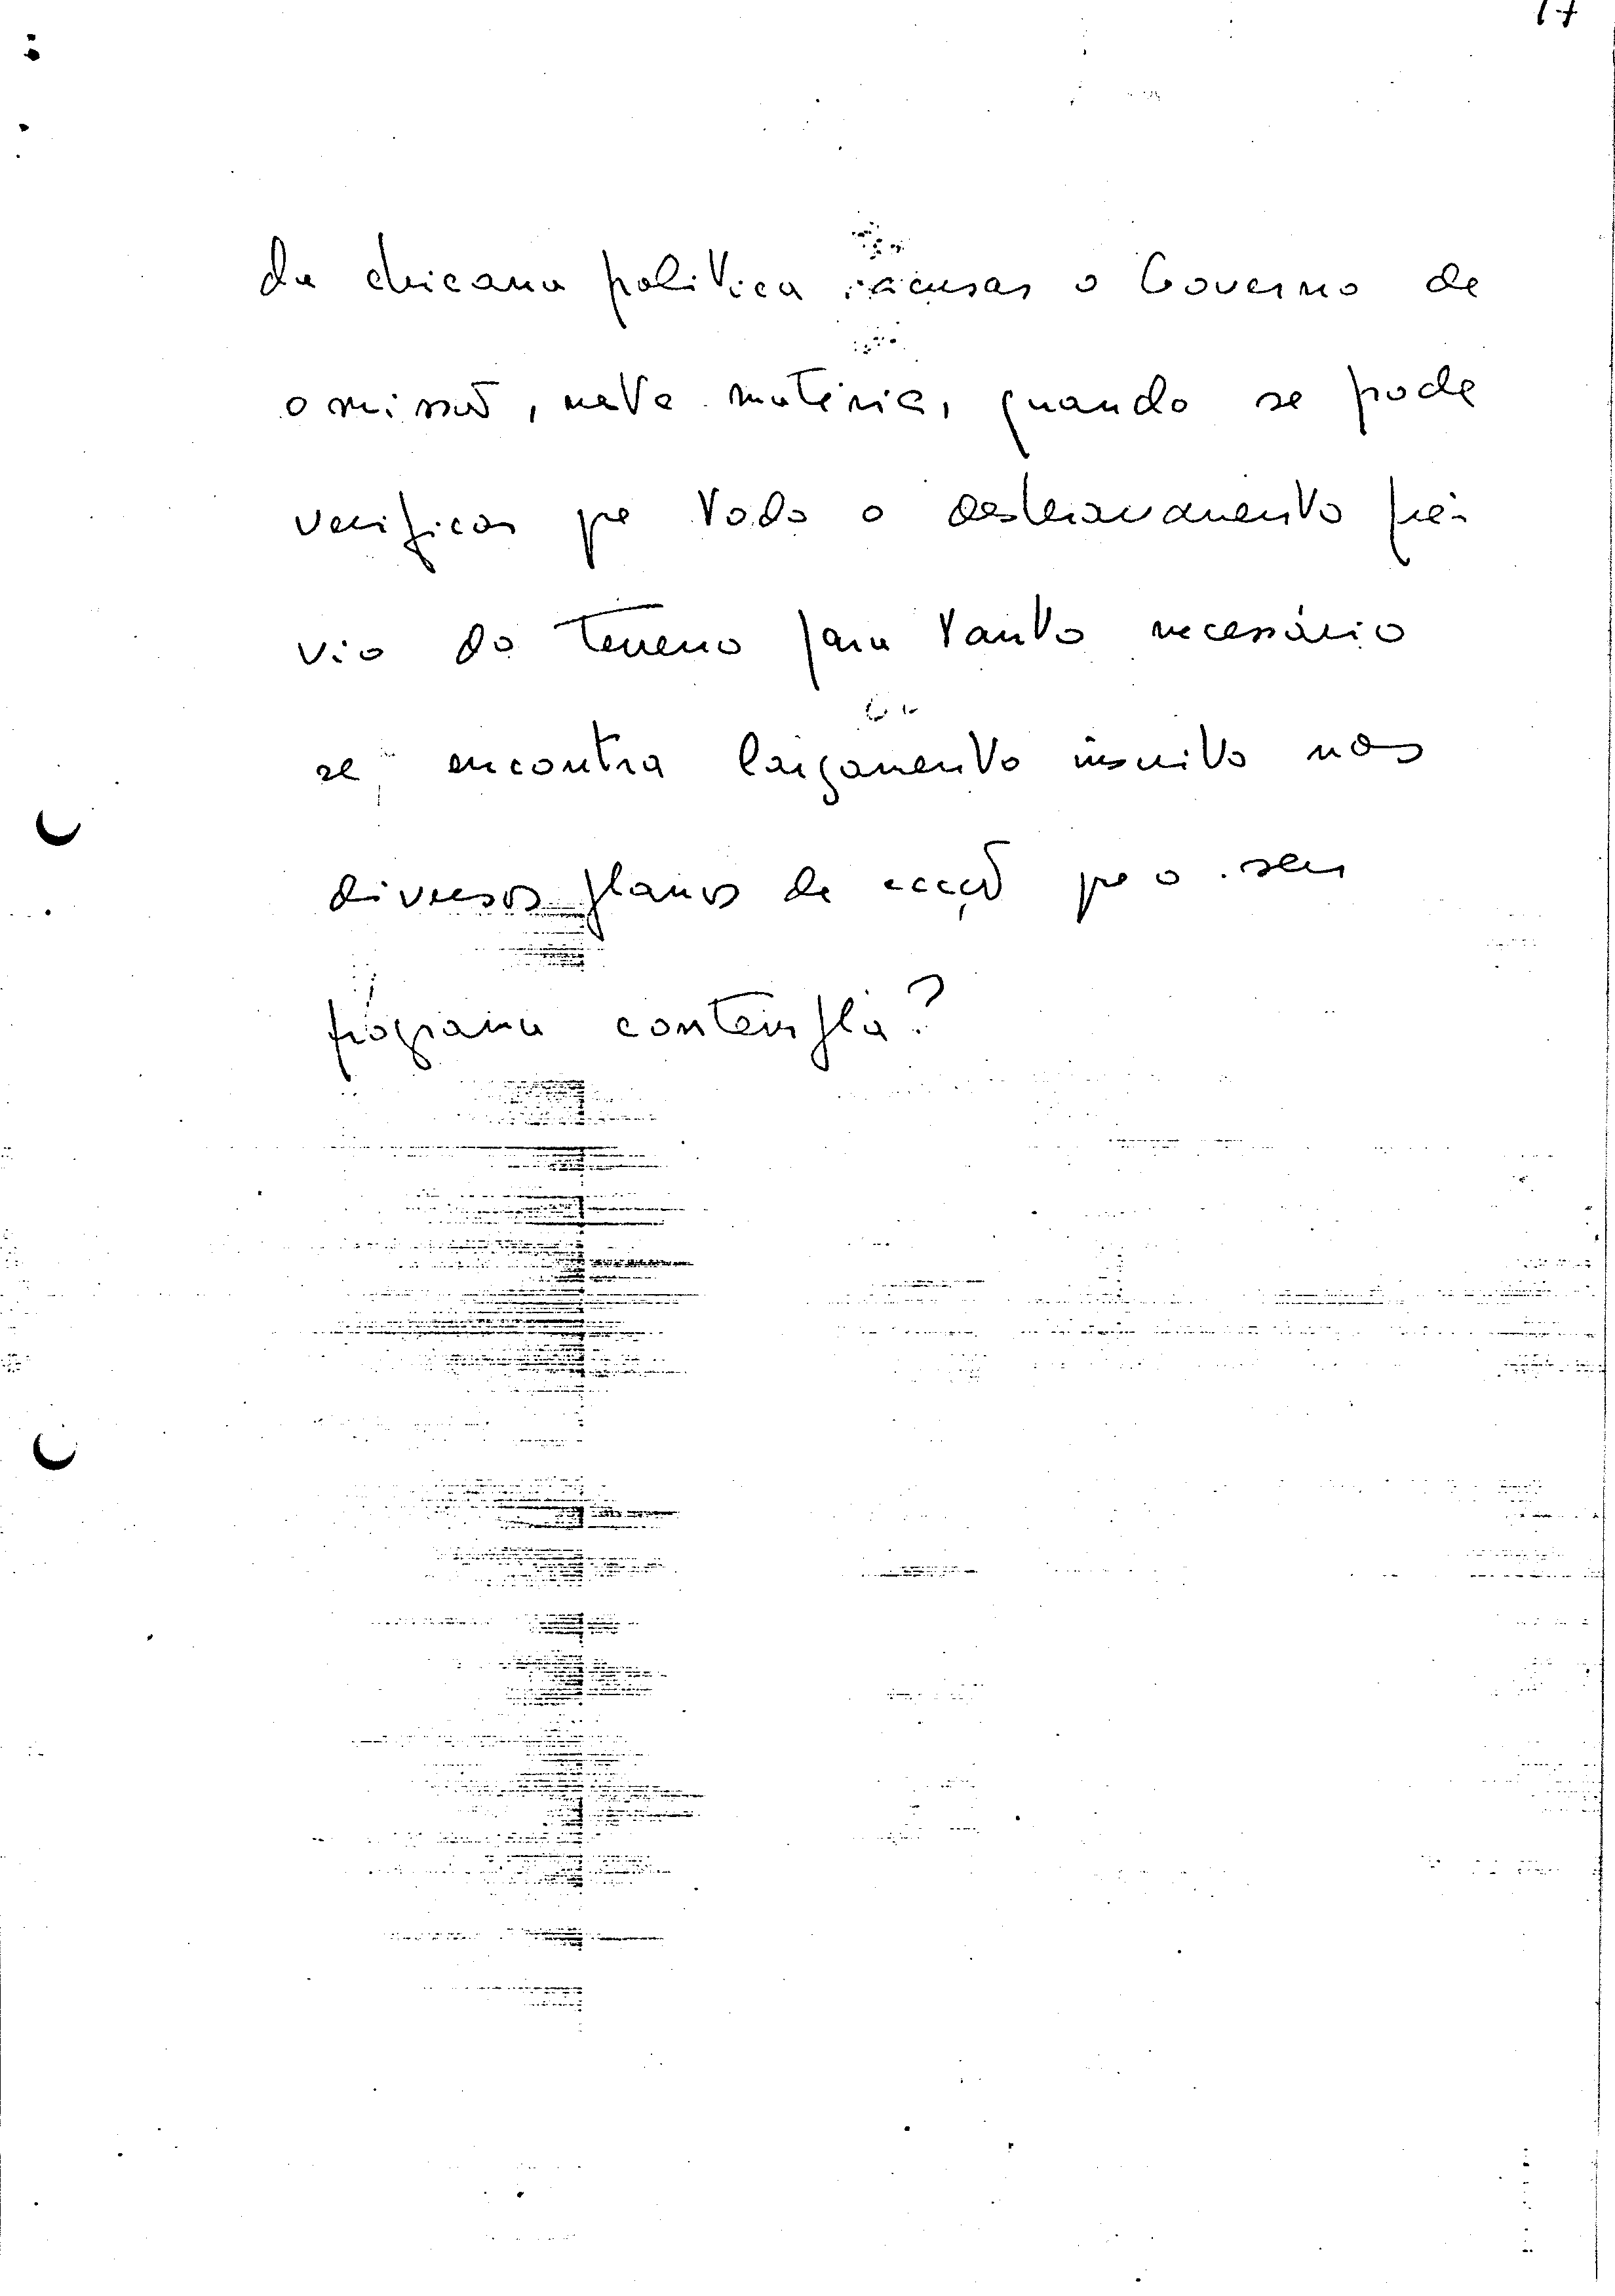 17
da chicana política acusar o Governo de
omissão, nesta matéria, quando se pode
verificar que todo o desbravamento pré-
vio do terreno para tanto necessário
se encontra largamente inscrito nos
diversos planos de acção que o seu
programa contempla?